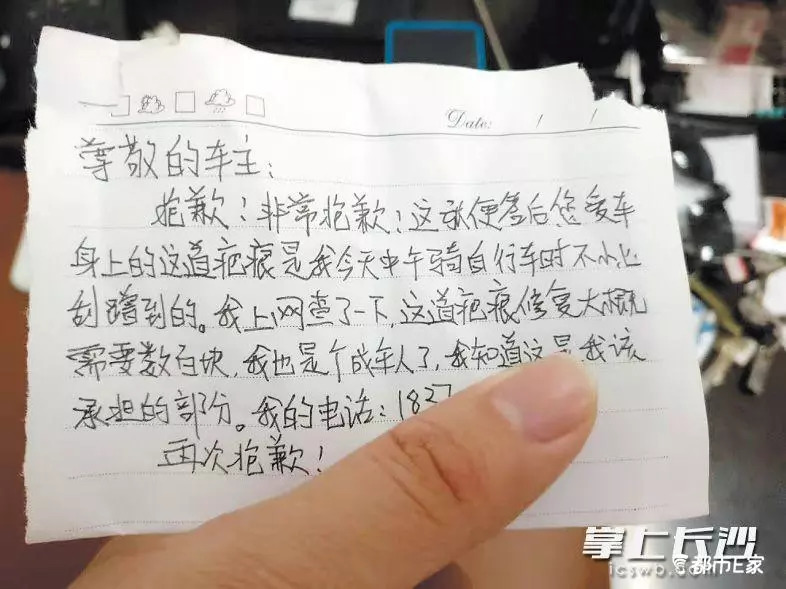 Date: / /
尊敬的车主:
抱歉!非常抱歉!这张便笺后您爱车
身上的这道疤痕是我今天中午骑自行车时不小心
刮蹭到的。我上网查了一下,这道疤痕修复大概
需要数百块,我也是个成年人了,我知道这是我该
承担的部份。我的电话:1827
再次抱歉!
掌上长沙
icswb.com
都市E家